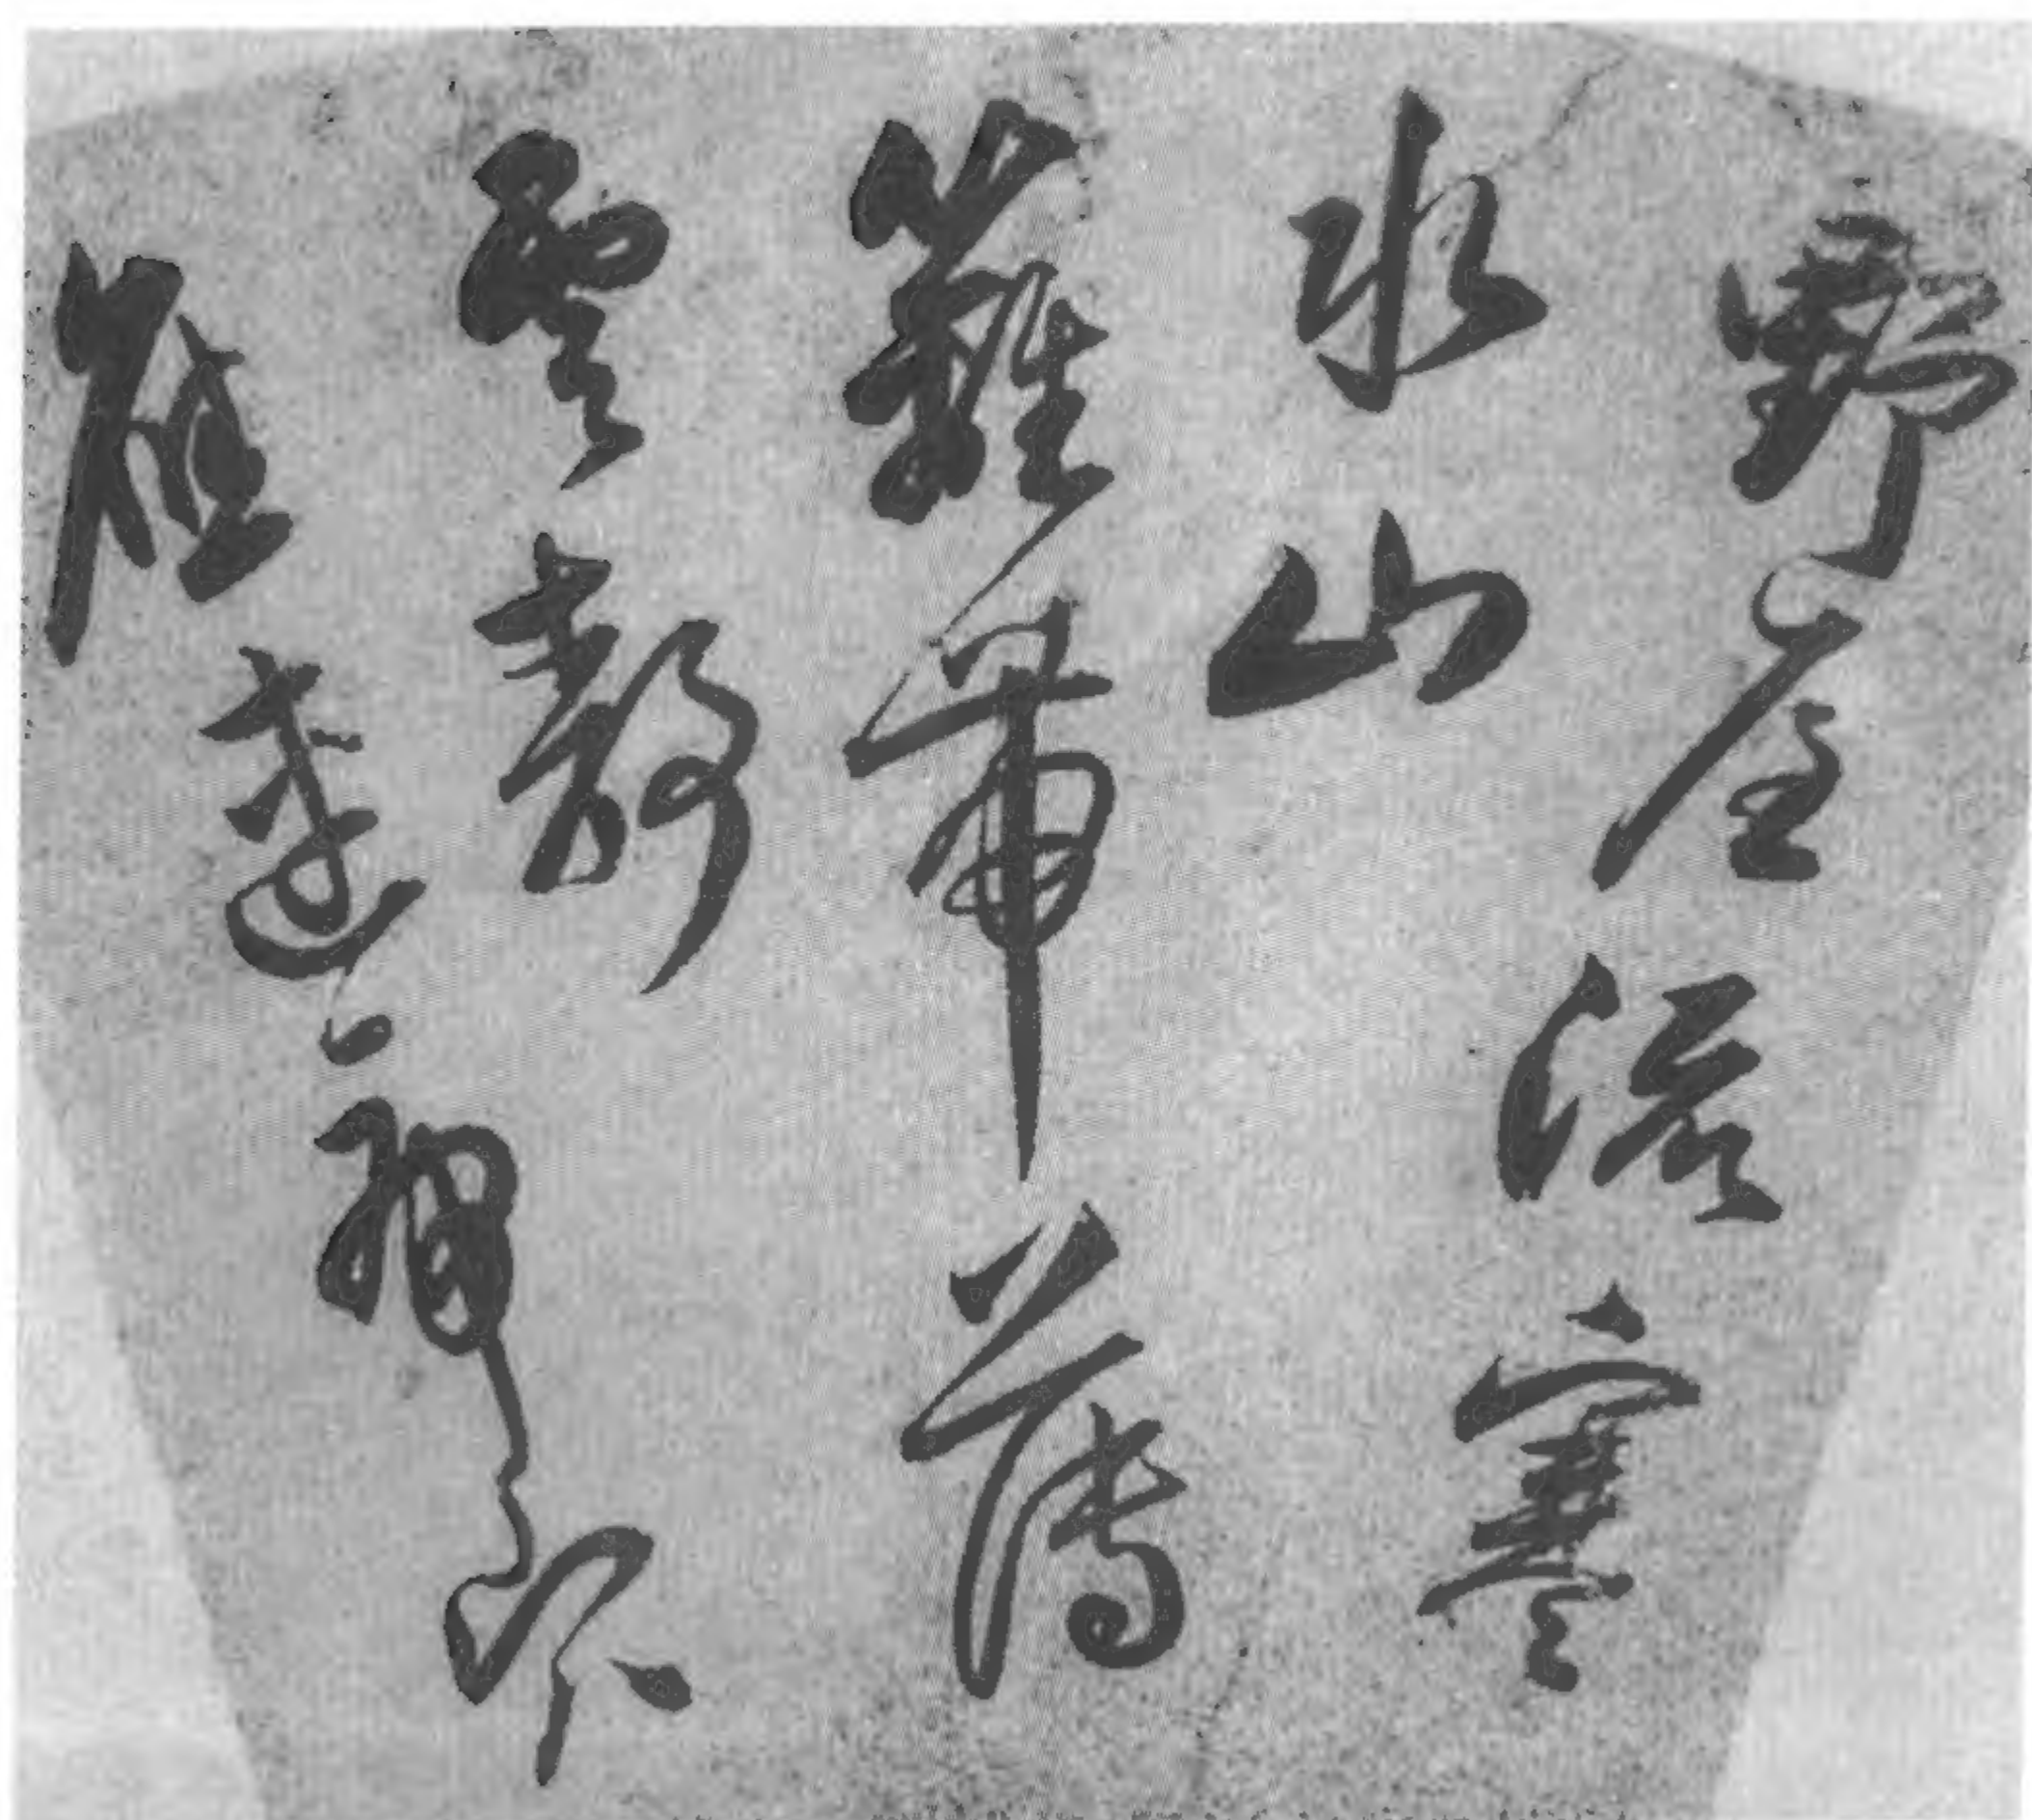 野屋流寒
水山
籬帶薄
雲靜
應連虎穴